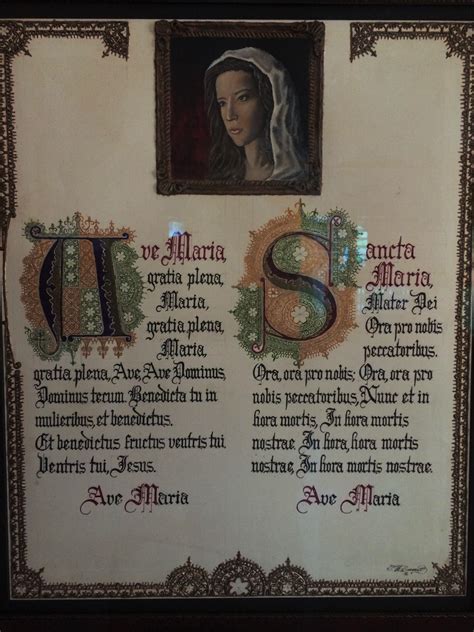 Ave Maria,
gratia plena,
Maria,
gratia plena,
Maria,
gratia plena, Ave, Ave Dominus,
Dominus tecum. Benedicta tu in
mulieribus, et benedictus.
Et benedictus fructus ventris tui,
Ventris tui, Jesus.
Ave Maria
Sancta
Maria,
Mater Dei
Ora pro nobis
peccatoribus.
Ora, ora pro nobis; Ora, ora pro
nobis peccatoribus, Nunc et in
hora mortis, In hora mortis
nostrae. In hora, hora mortis
nostrae, In hora mortis nostrae.
Ave Maria